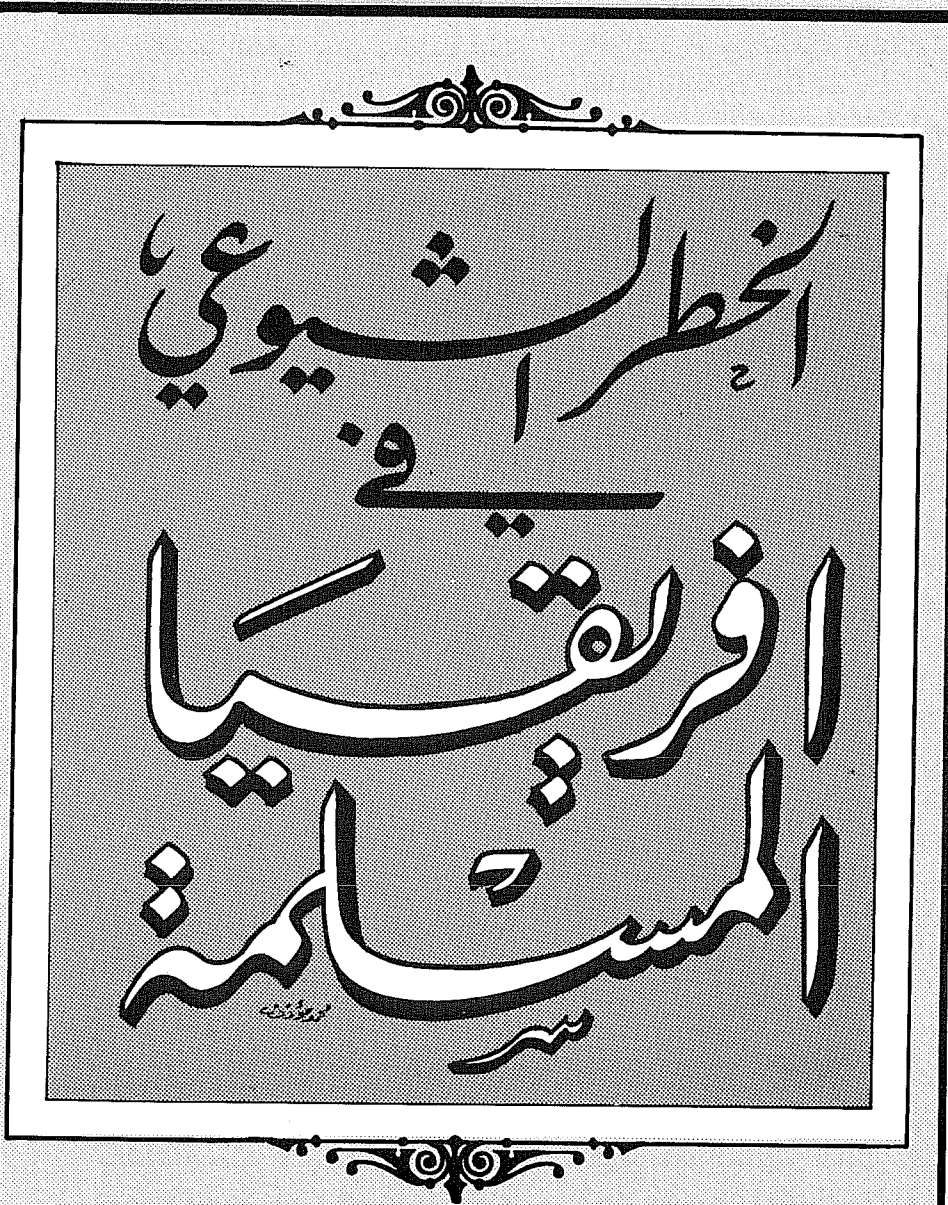 الخطر الشيوعي
في
افريقيا
المسلمة